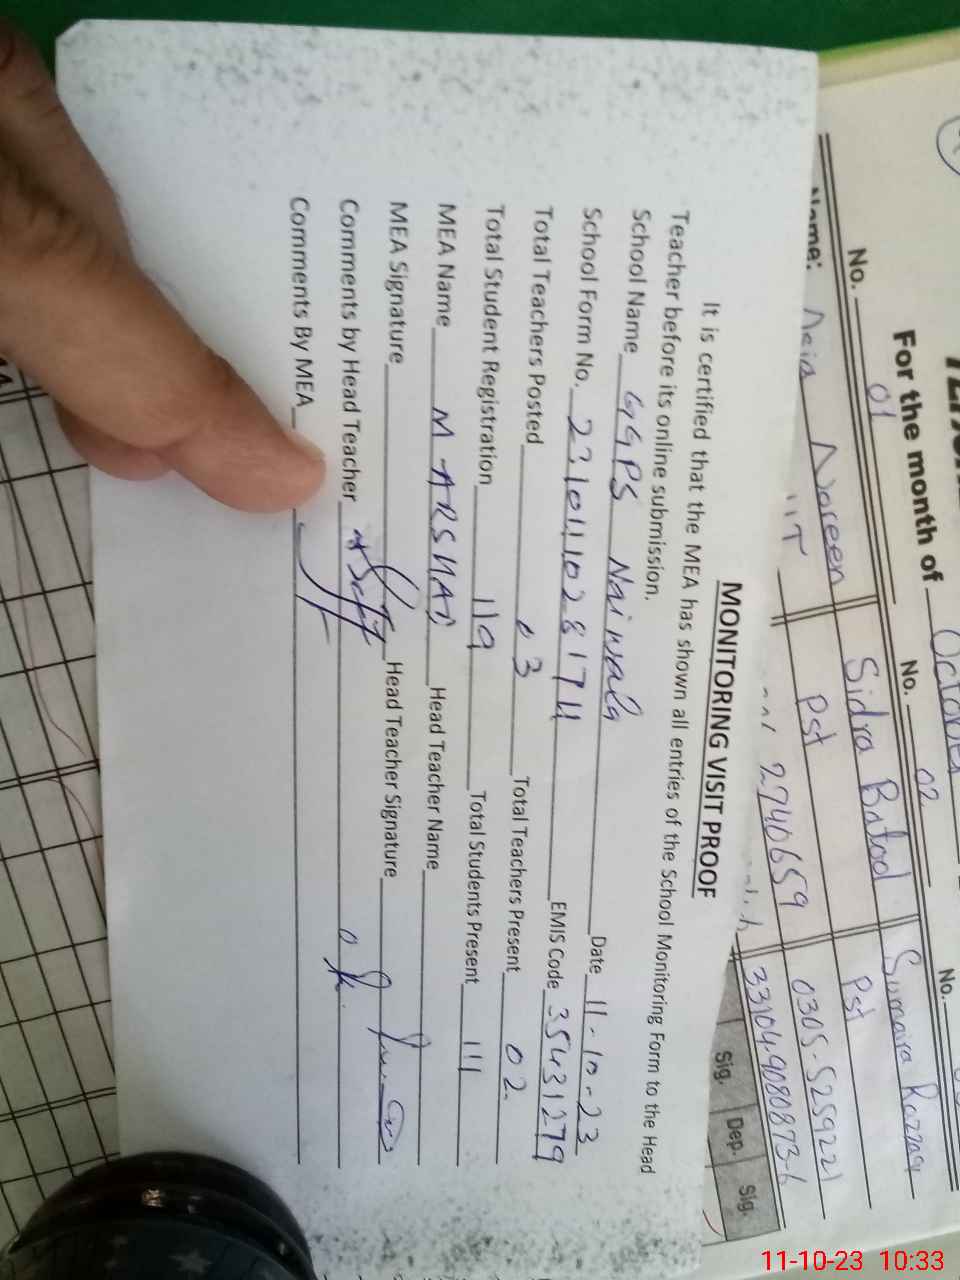 MONITORING VISIT PROOF
It is certified that the MEA has shown all entries of the School Monitoring Form to the Head
Teacher before its online submission.
School Name GGPS Naiwala Date 11-10-23
School Form No. 2310111028174 EMIS Code 35431279
Total Teachers Posted 03 Total Teachers Present 02
Total Student Registration 119 Total Students Present 111
MEA Name M ARSHAD Head Teacher Name
MEA Signature Head Teacher Signature
Comments by Head Teacher
Comments By MEA
For the month of October
No. 01 No. 02 No.
Name: Asia Noreen Sidra Batool Sumaira Razzaq
Pst Pst
2740659 0305-5259221
33104-9080873-6
Sig. Dep. Sig.
11-10-23 10:33